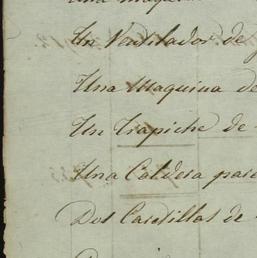 Una maquina
Un Ventilador de
Una Maquina de
Un Trapiche de
Una Caldera para
Dos Casillas de